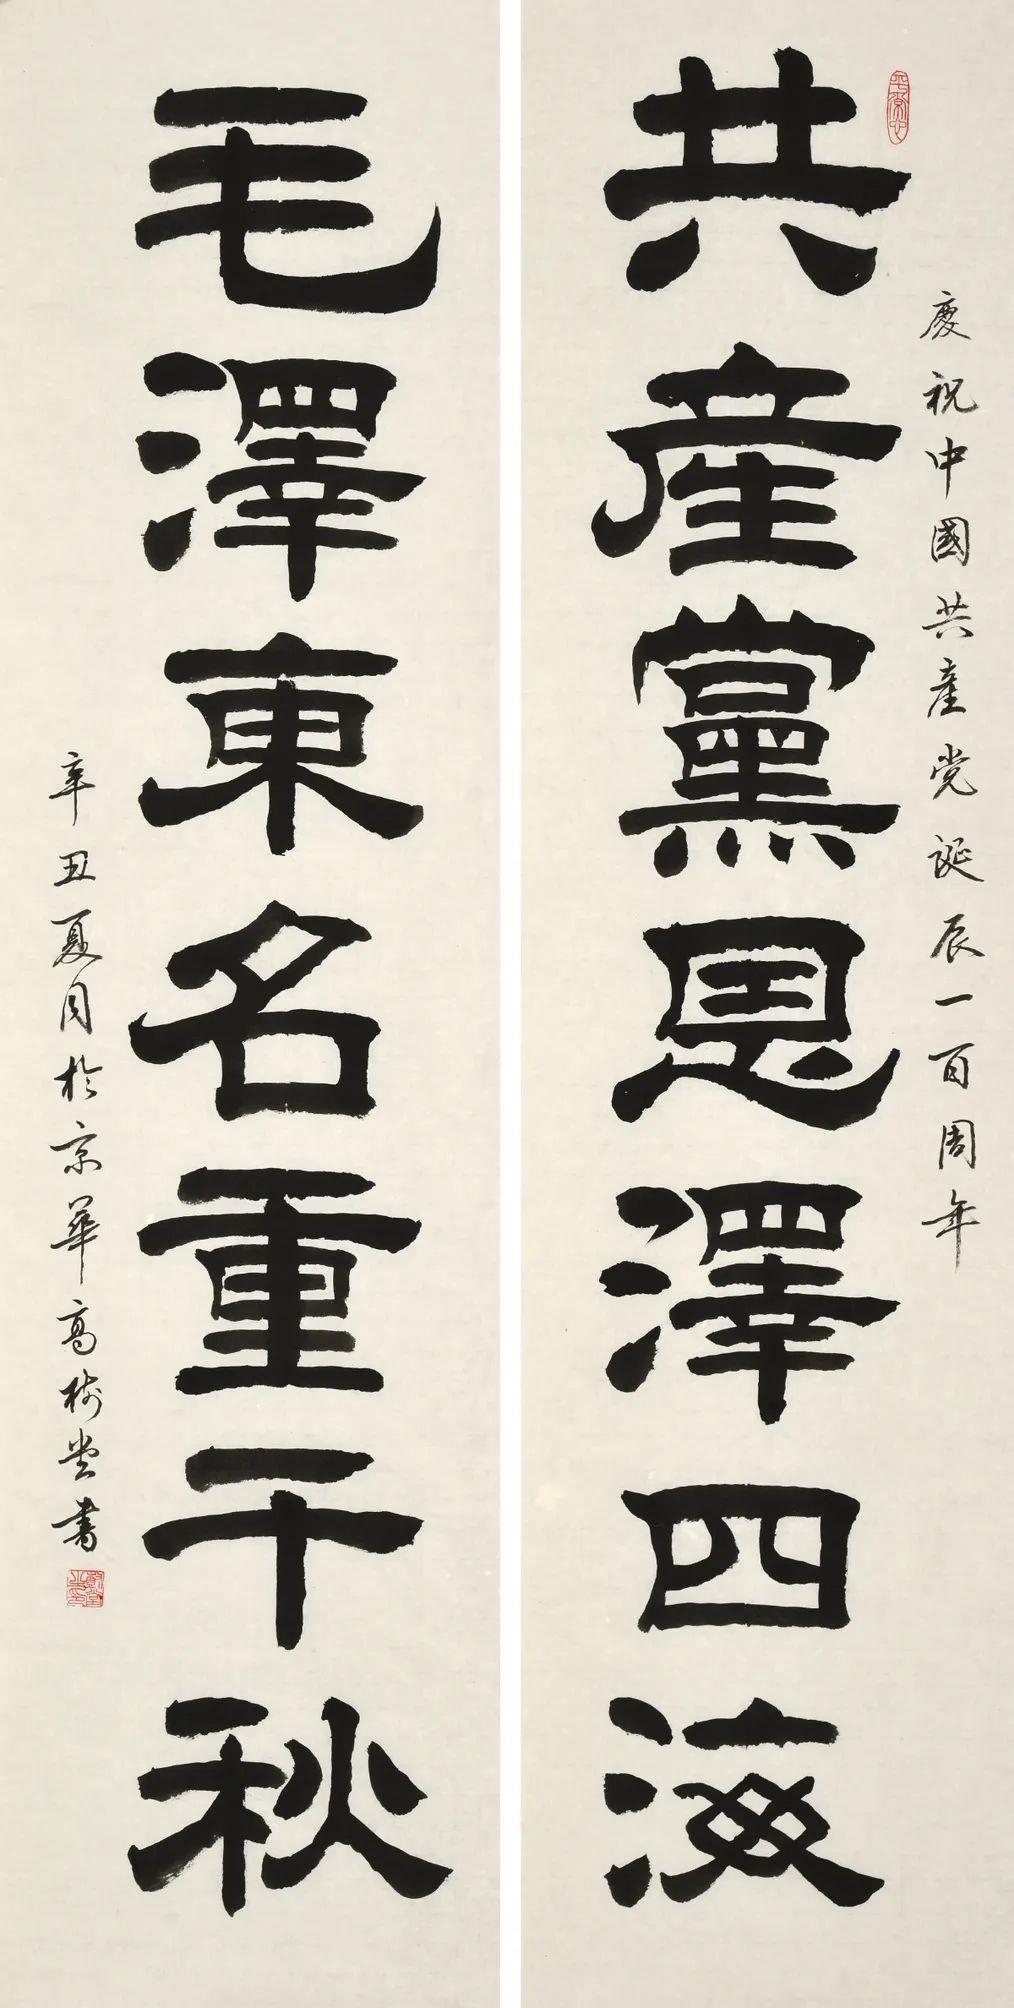 慶祝中國共產党誕辰一百周年
共產黨恩澤四海
毛澤東名重千秋
辛丑夏月於京華高樹堂書